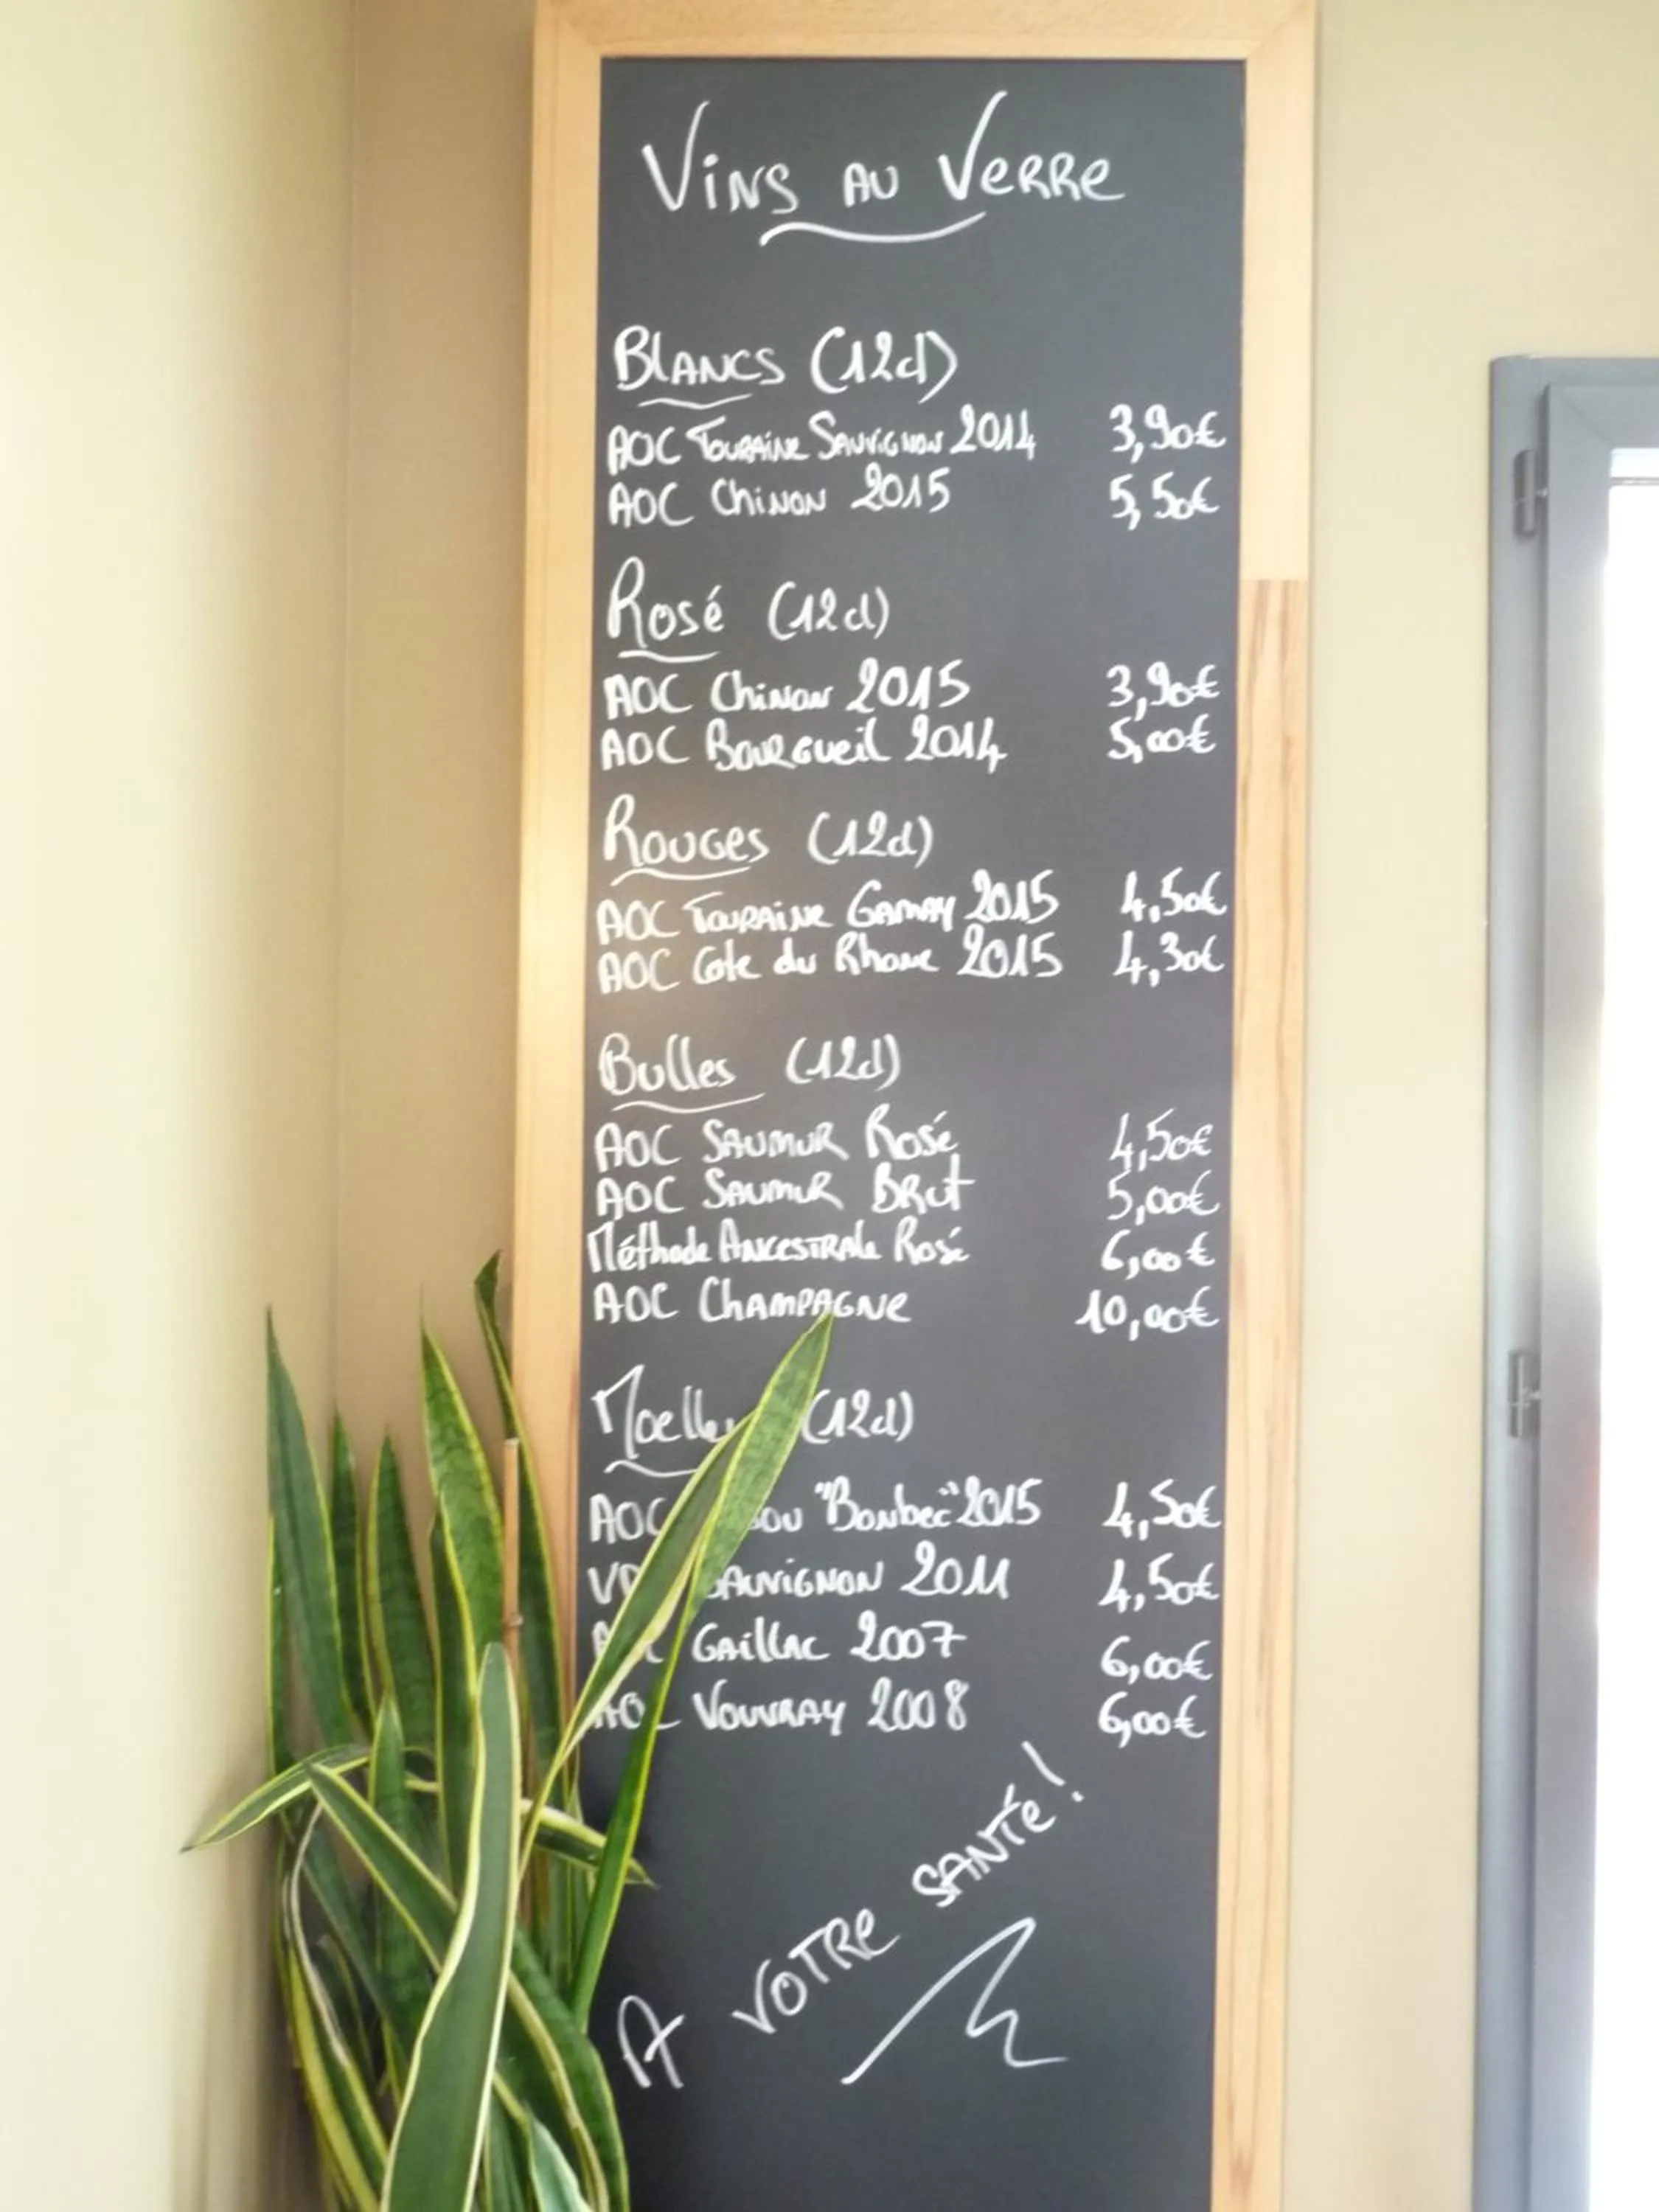 Vins au Verre
Blancs (12cl)
AOC Touraine Sauvignon 2014 3,90€
AOC Chinon 2015 5,50€
Rosé (12cl)
AOC Chinon 2015 3,90€
AOC Bourgueil 2014 5,00€
Rouges (12cl)
AOC Touraine Gamay 2015 4,50€
AOC Cote du Rhone 2015 4,30€
Bulles (12cl)
AOC Saumur Rosé 4,50€
AOC Saumur Brut 5,00€
Méthode Ancestrale Rosé 6,00€
AOC Champagne 10,00€
(12cl)
AOC "Bonbec" 2015 4,50€
Sauvignon 2011 4,50€
AOC Gaillac 2007 6,00€
AOC Vouvray 2008 6,00€
A votre santé!